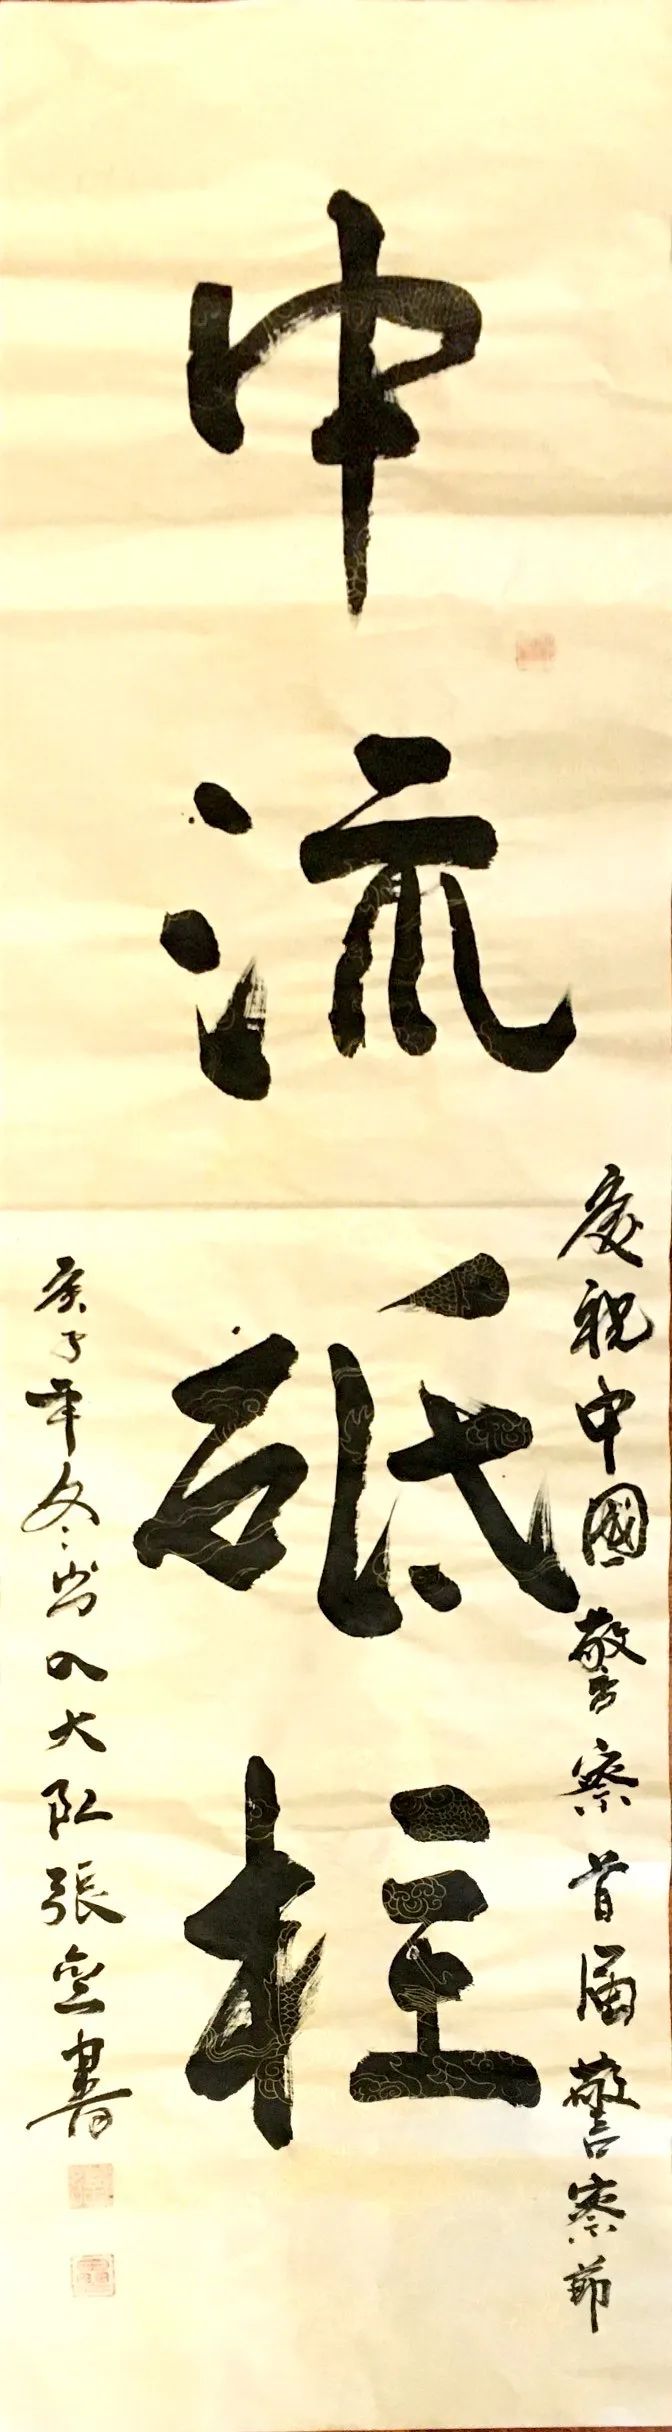 慶祝中國警察首届警察節
中流砥柱
庚子年冬岩九大队張書